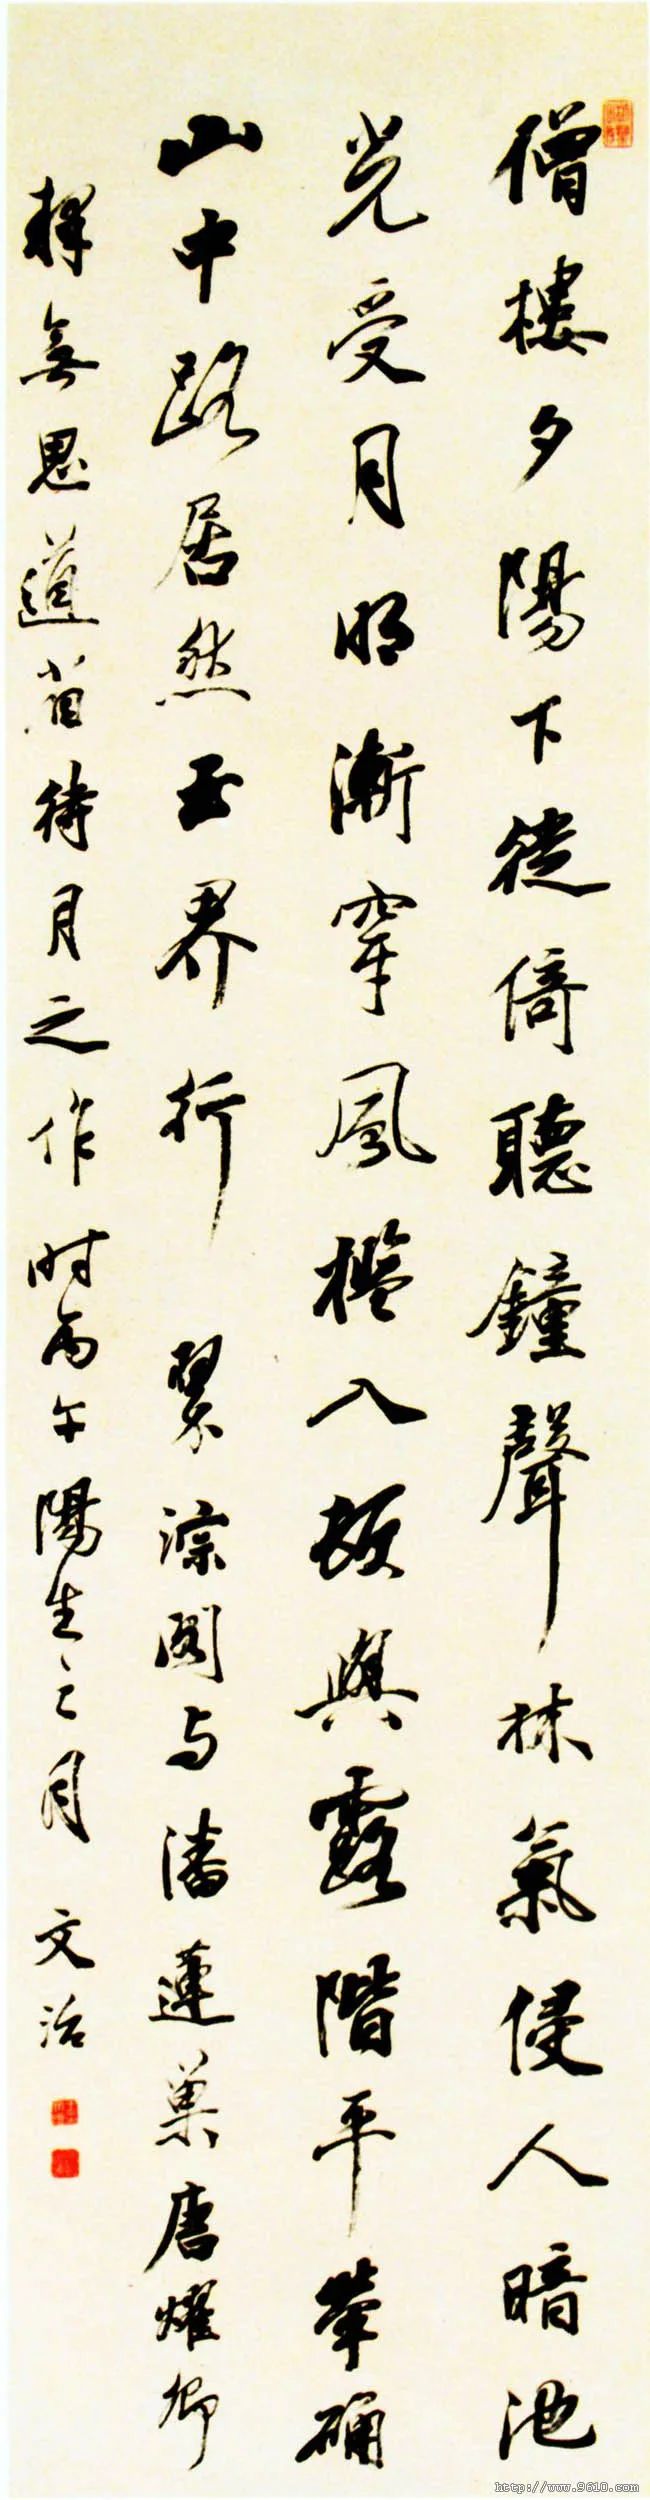 僧樓夕陽下徙倚聽鐘聲林氣侵人暗池
光受月明漸穿風檻入頗與露階平犖确
山中路居然玉界行 聚淙閣与潘蓮巢唐耀卿
釋無思道省待月之作時丙午陽生之月 文治
http://www.9610.com